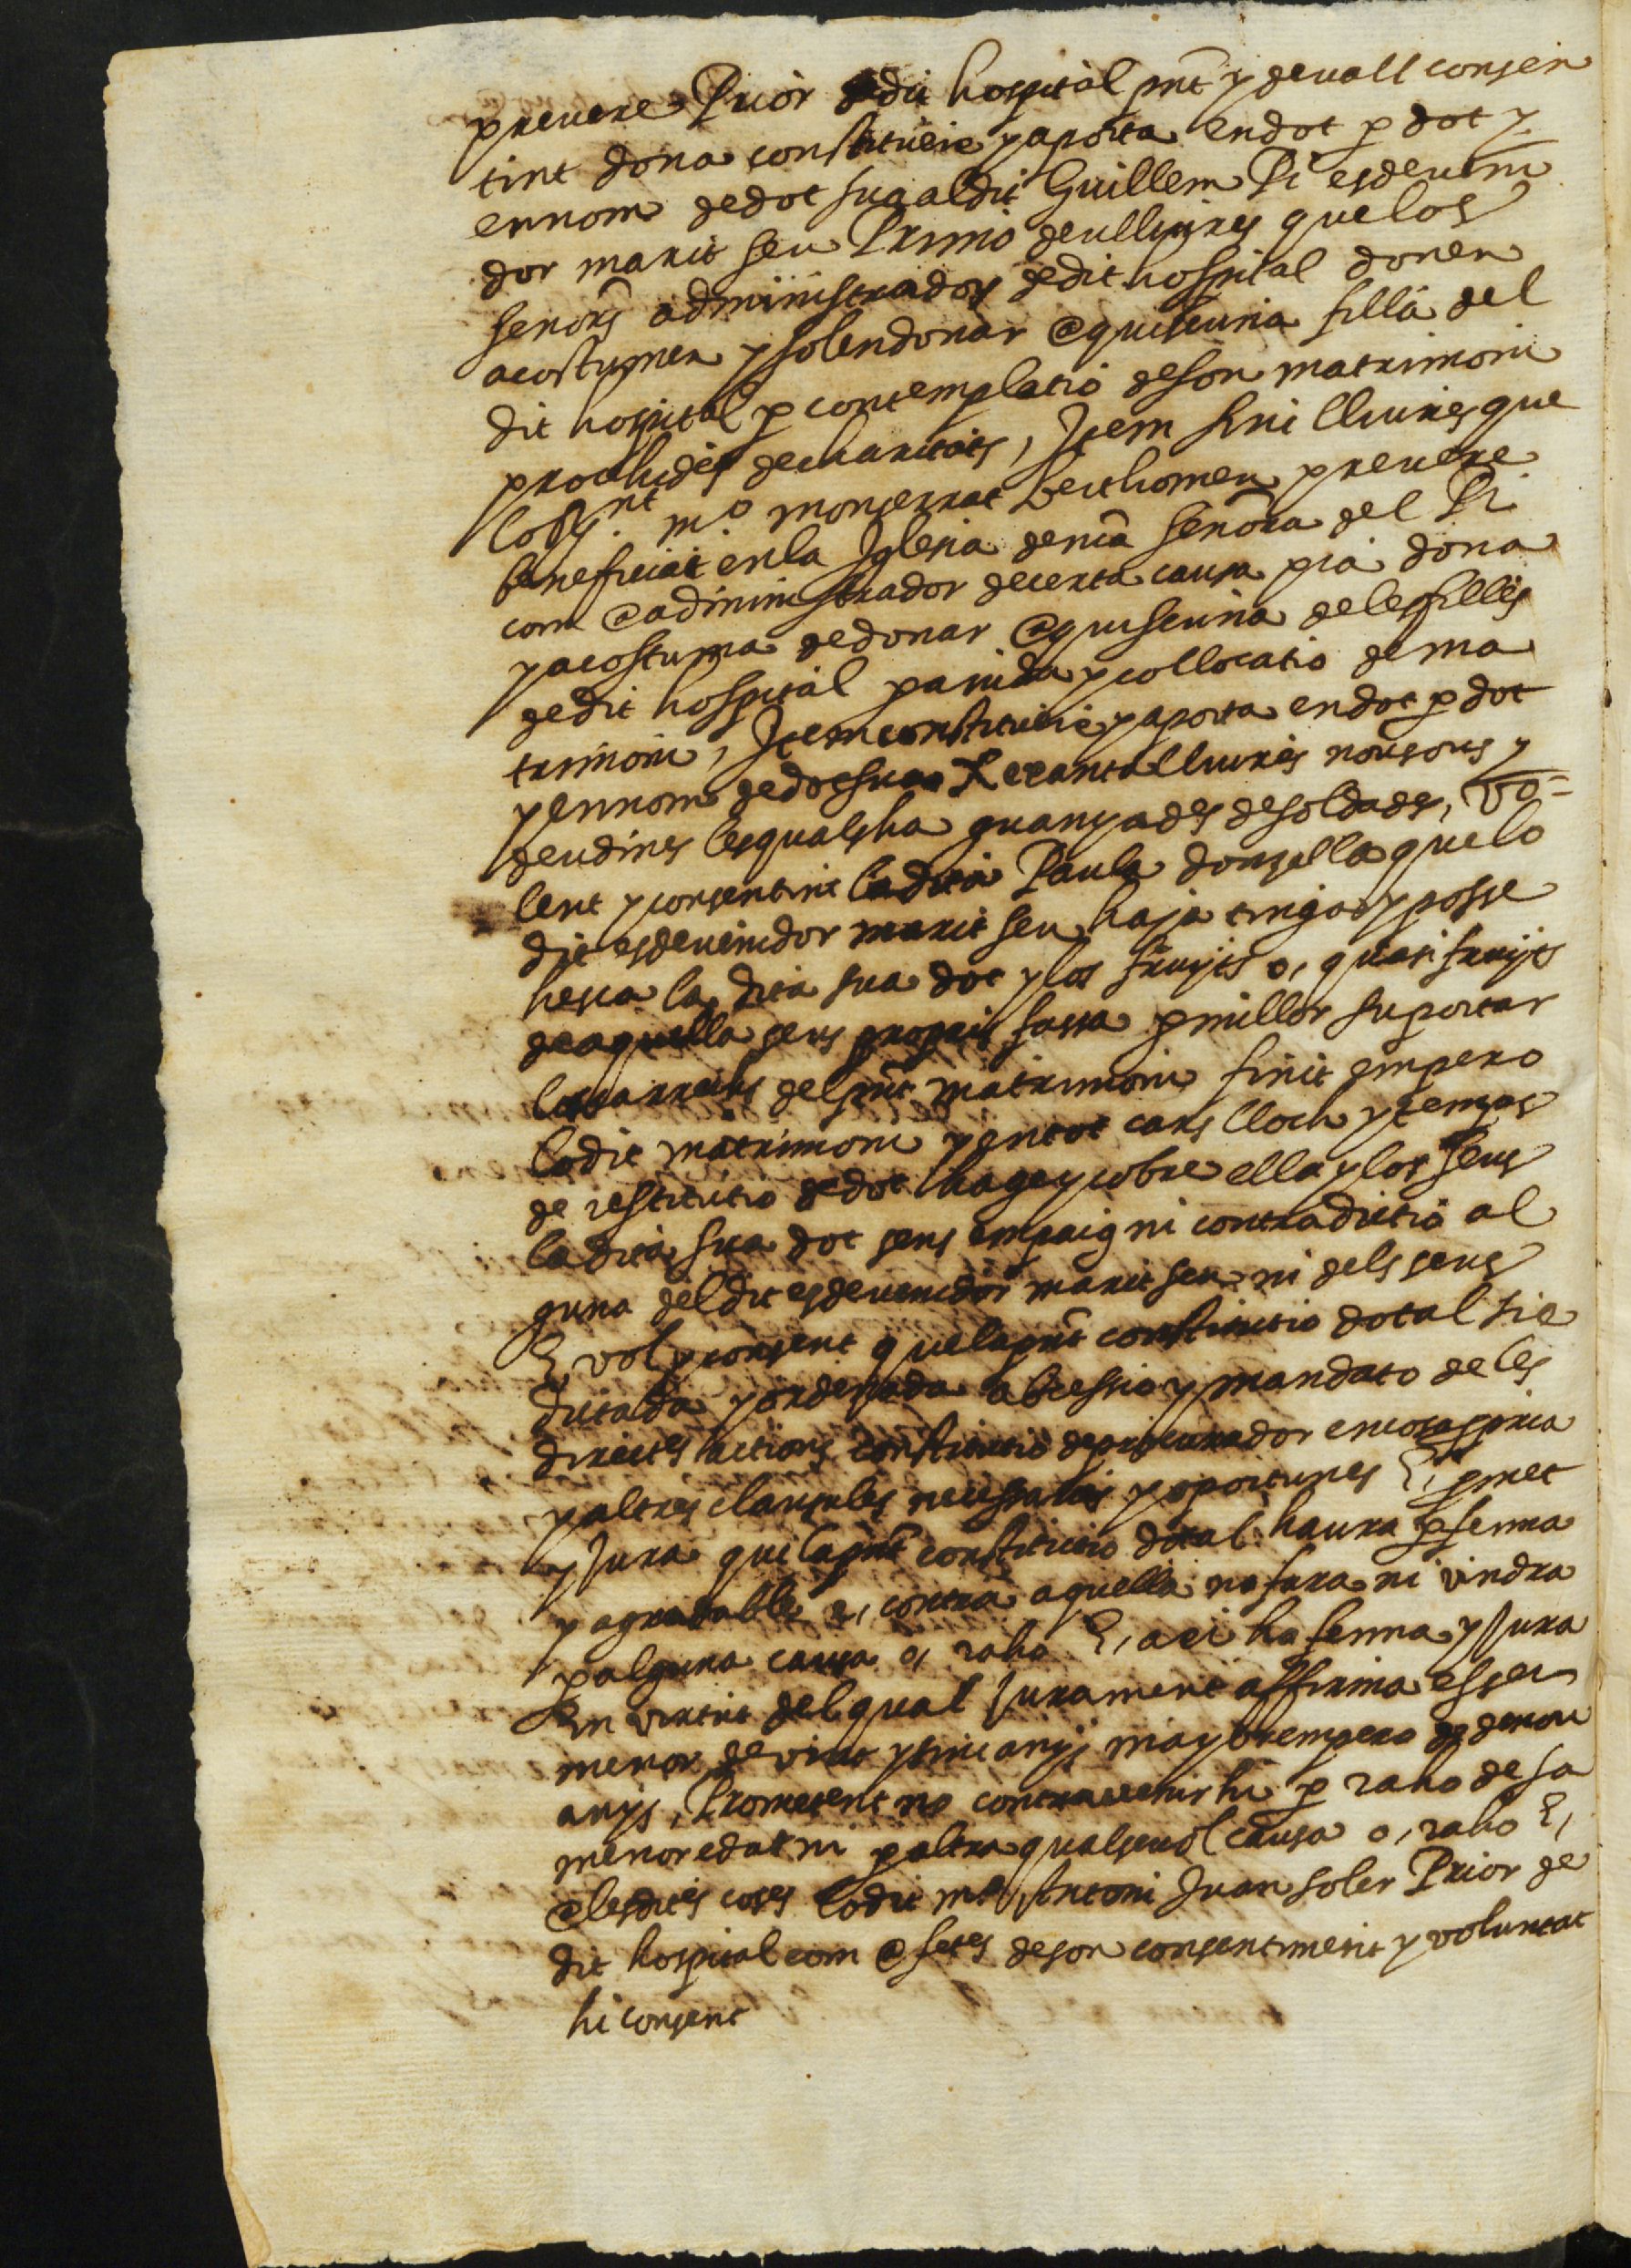 prevere Prior de dit hospital pnt y devall consen
tint dona constitueix y aporta en dot p dot y
en nom de dot sua al dit Guillem Pi esdeveni
dor marit seu Primo deu lliures que los
senors administradors de dit hospital donen
acostumen y solen donar @ quiscuna filla del
dit hospital p contemplatio de son matrimoni
prochides de charitats, Item sinc lliures que
lo R.nt m.o monserrat Berthomeu prevere
beneficiat en la Iglesia de nra senora del Pi
com @ administrador de certa causa pia dona
y acostuma de donar @ quiscuna de les filles
de dit hospital p anuda y collocatio de ma
trimoni, Item constitueix y aporta en dot p dot
y en nom de dot sua xexanta lliures nou sous y
deu dines les quals ha guanyades de soldades, vo=
lent y consentint la dita Paula donsella que lo
dit esdevenidor marit seu haja tinga y posse
hesca la dita sua dot y los fruyts o, quasi fruyts
de aquella seus propris fassa p millor suportar
los carrechs del pnt matrimoni finit empero
lo dit matrimoni y en tot cars lloch y temps
de restitutio de dot hage y cobre ella y los seus
la dita sua dot sens empaig ni contradictio al
guna del dit esdevenidor marit seu ni dels seus
E vol y consent que la pnt constitutio dotal sie
dictada y ordenada ab cessio y mandato de les
directes actions constitutio de procurador en cosa ppria
y altres clausules necessaries y oportunes E, pmet
y jura que la pnt constitutio dotal haura p ferma
y agradable e, contra aquella no fara ni vindra
p alguna causa o, raho E, axi ho ferma y jura
En virtut del qual jurament affirma esser
menor de vint y sinc anys mayor empero de denou
anys, Prometent no contravenir hi p raho de sa
menor edat ni p altra qualsevol causa o, raho E,
@ les dites coses lo dit m.o Antoni Juan soler Prior de
dit hospital com @ fetes de son consentiment y voluntat
hi consent